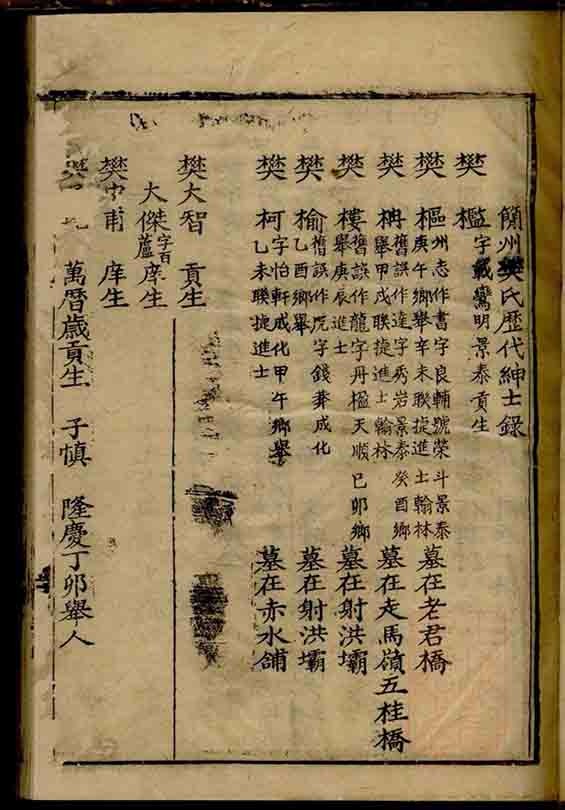 簡州樊氏歷代紳士錄
樊檻字載鸞明景泰貢生
樊樞州志作書字良輔號榮斗景泰庚午鄉舉辛未聯捷進士翰林 墓在老君橋
樊柟舊誤作達字秀岩景泰癸酉鄉舉甲戌聯捷進士翰林 墓在走馬嶺五桂橋
樊樓舊誤作龍字丹楹天順己卯鄉舉庚辰進士 墓在射洪壩
樊榆舊誤作 字錢莽成化乙酉鄉舉 墓在射洪壩
樊柯字怡軒成化甲午鄉舉乙未聯捷進士 墓在赤水舖
樊大智 貢生
大傑字百蘆庠生
樊 甫 庠生
樊 萬曆歲貢生 子慎 隆慶丁卯舉人